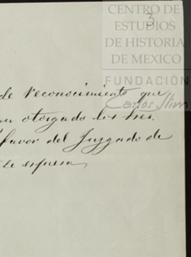 CENTRO DE
ESTUDIOS
DE HISTORIA
DE MEXICO
FUNDACIÓN
Carlos Slim
3
de reconocimiento que
otorgado los Sres.
favor del Juzgado de
se espresa